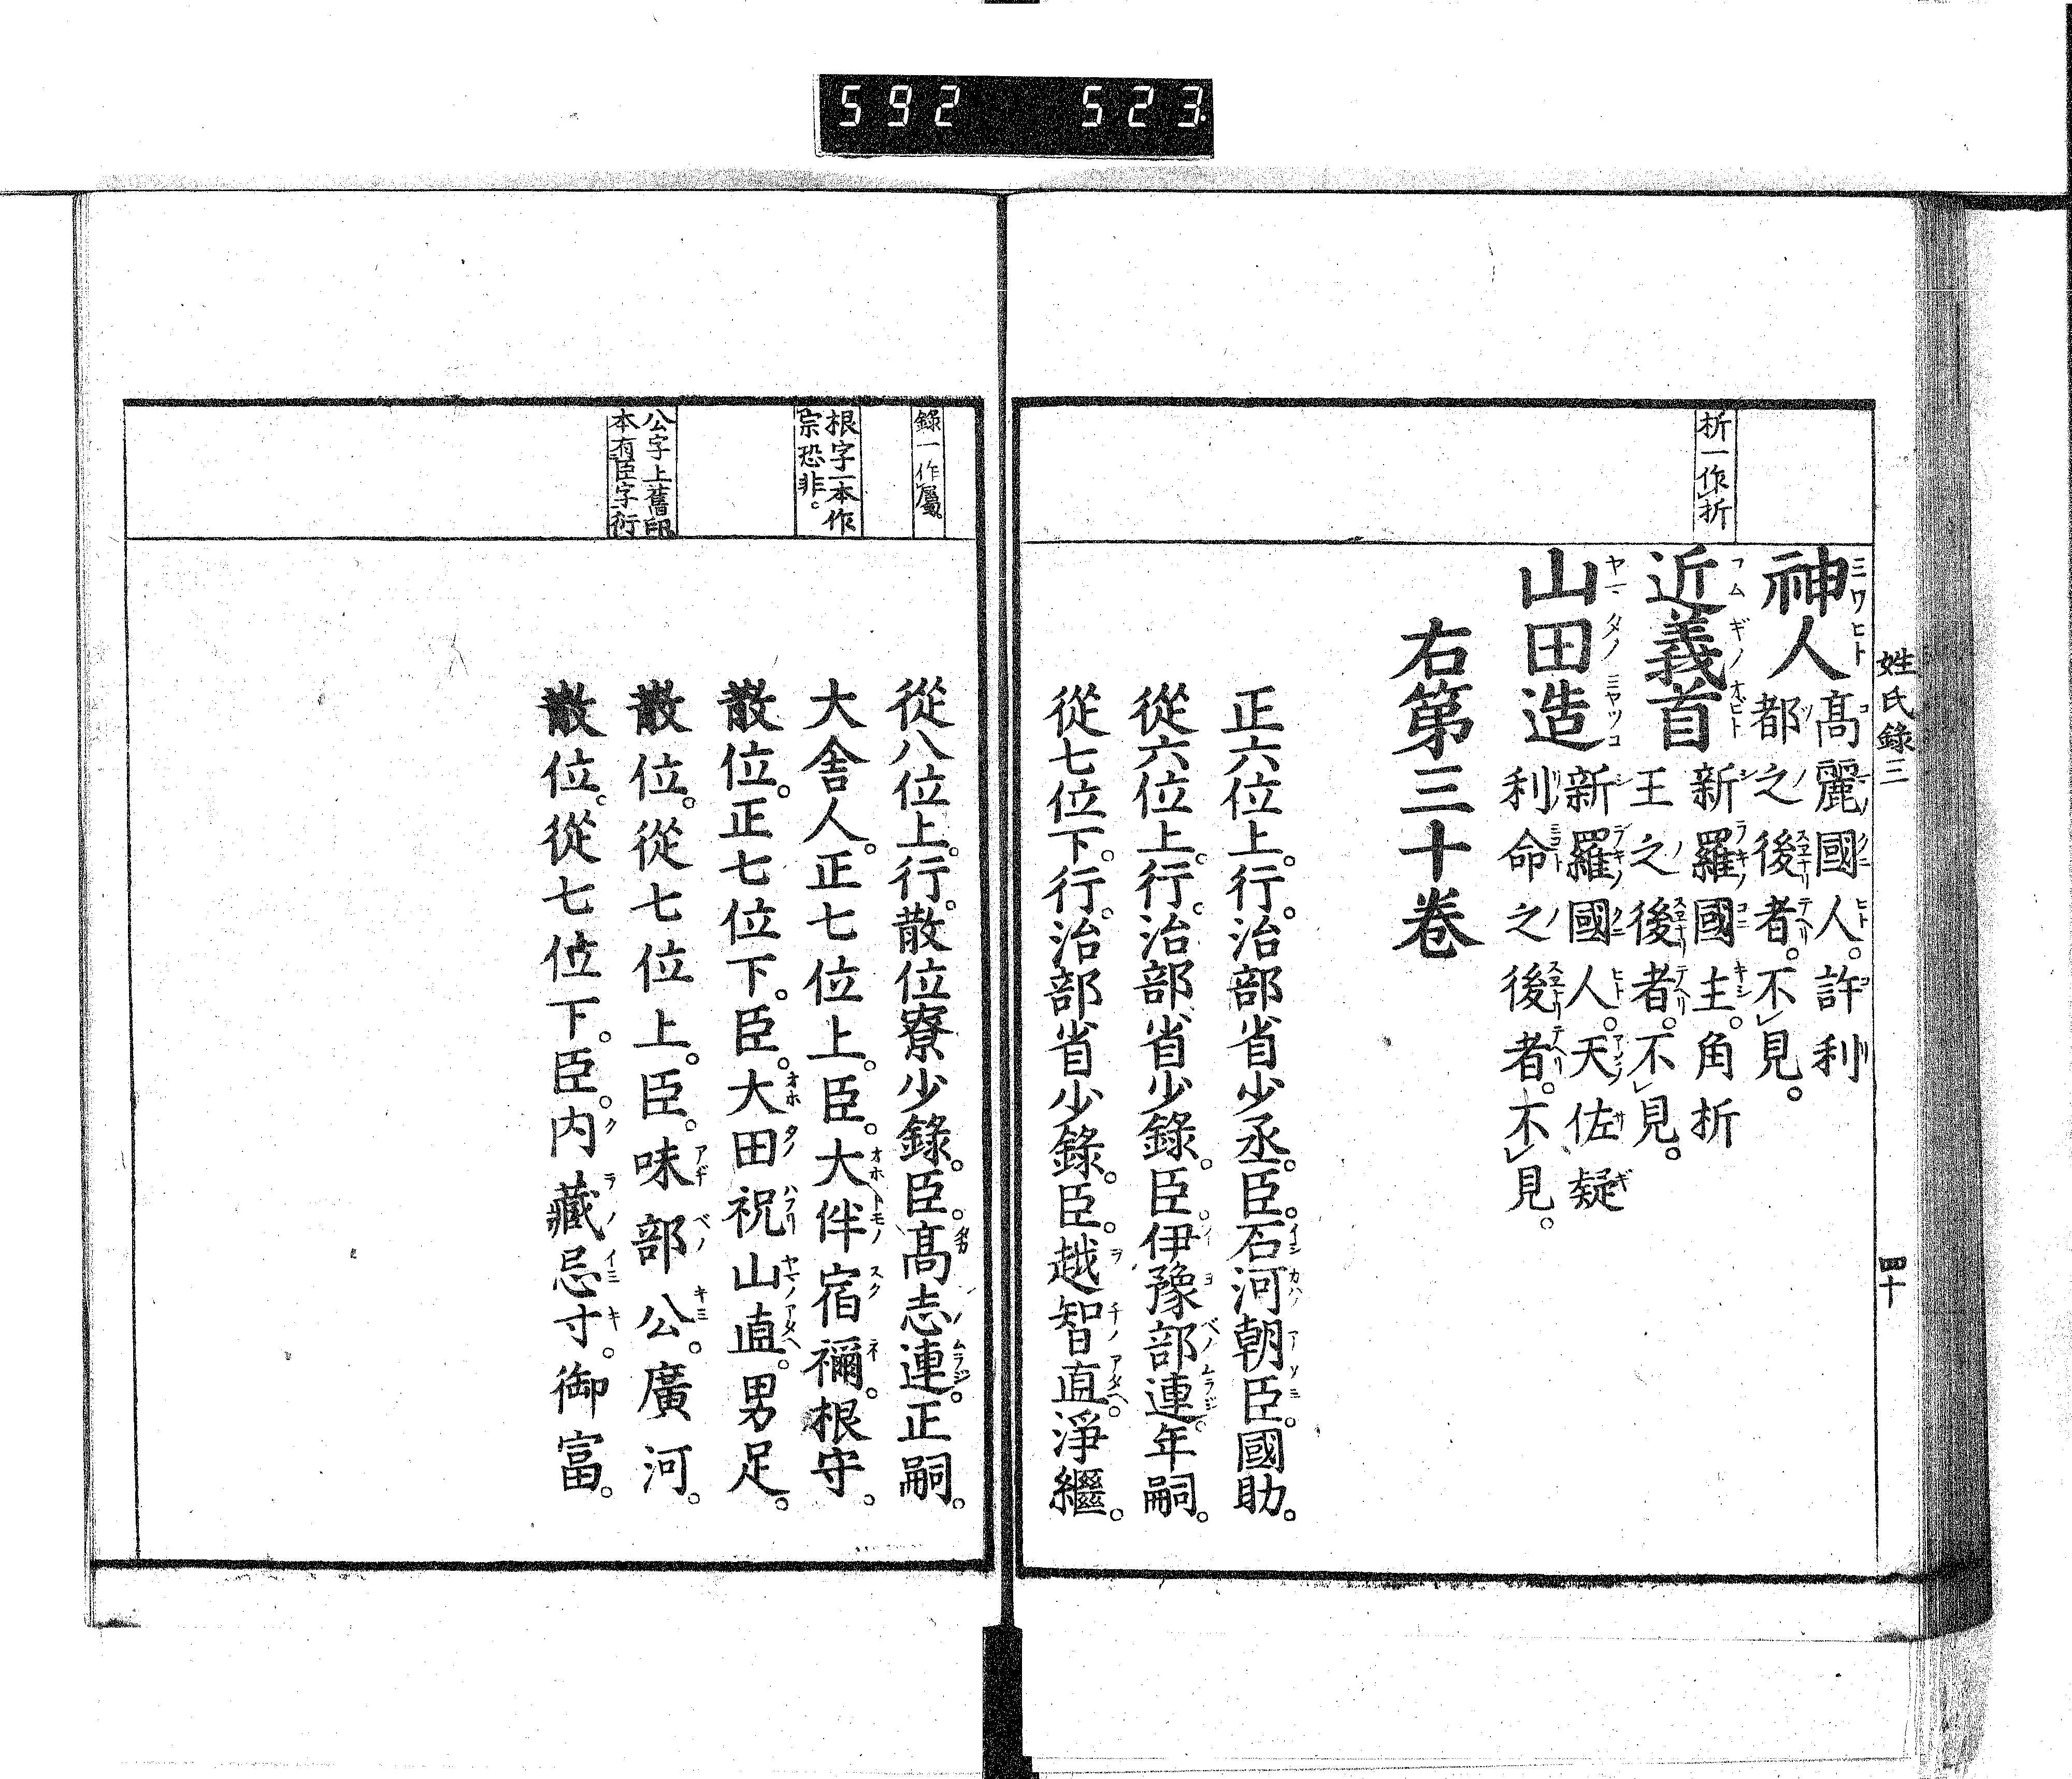 592 523
姓氏錄三
四十
析一作折
神人高麗國人。許利
都之後者。不見。
近義首新羅國主。角折
王之後者。不見。
山田造新羅國人。天佐疑
利命之後者。不見。
右第三十卷
正六位上。行。治部省少丞。臣。石河朝臣。國助。
從六位上。行。治部省少錄。臣。伊豫部連。年嗣。
從七位下。行。治部省少錄。臣。越智直。淨繼。
錄一作屬。
根字一本作
宗恐非。
公字上舊印
本有臣字衍
從八位上。行。散位寮少錄。臣。高志連。正嗣。
大舍人。正七位上。臣。大伴宿禰。根守。
散位。正七位下。臣。大田祝山直。男足。
散位。從七位上。臣。味部公。廣河。
散位。從七位下。臣。内藏忌寸。御富。